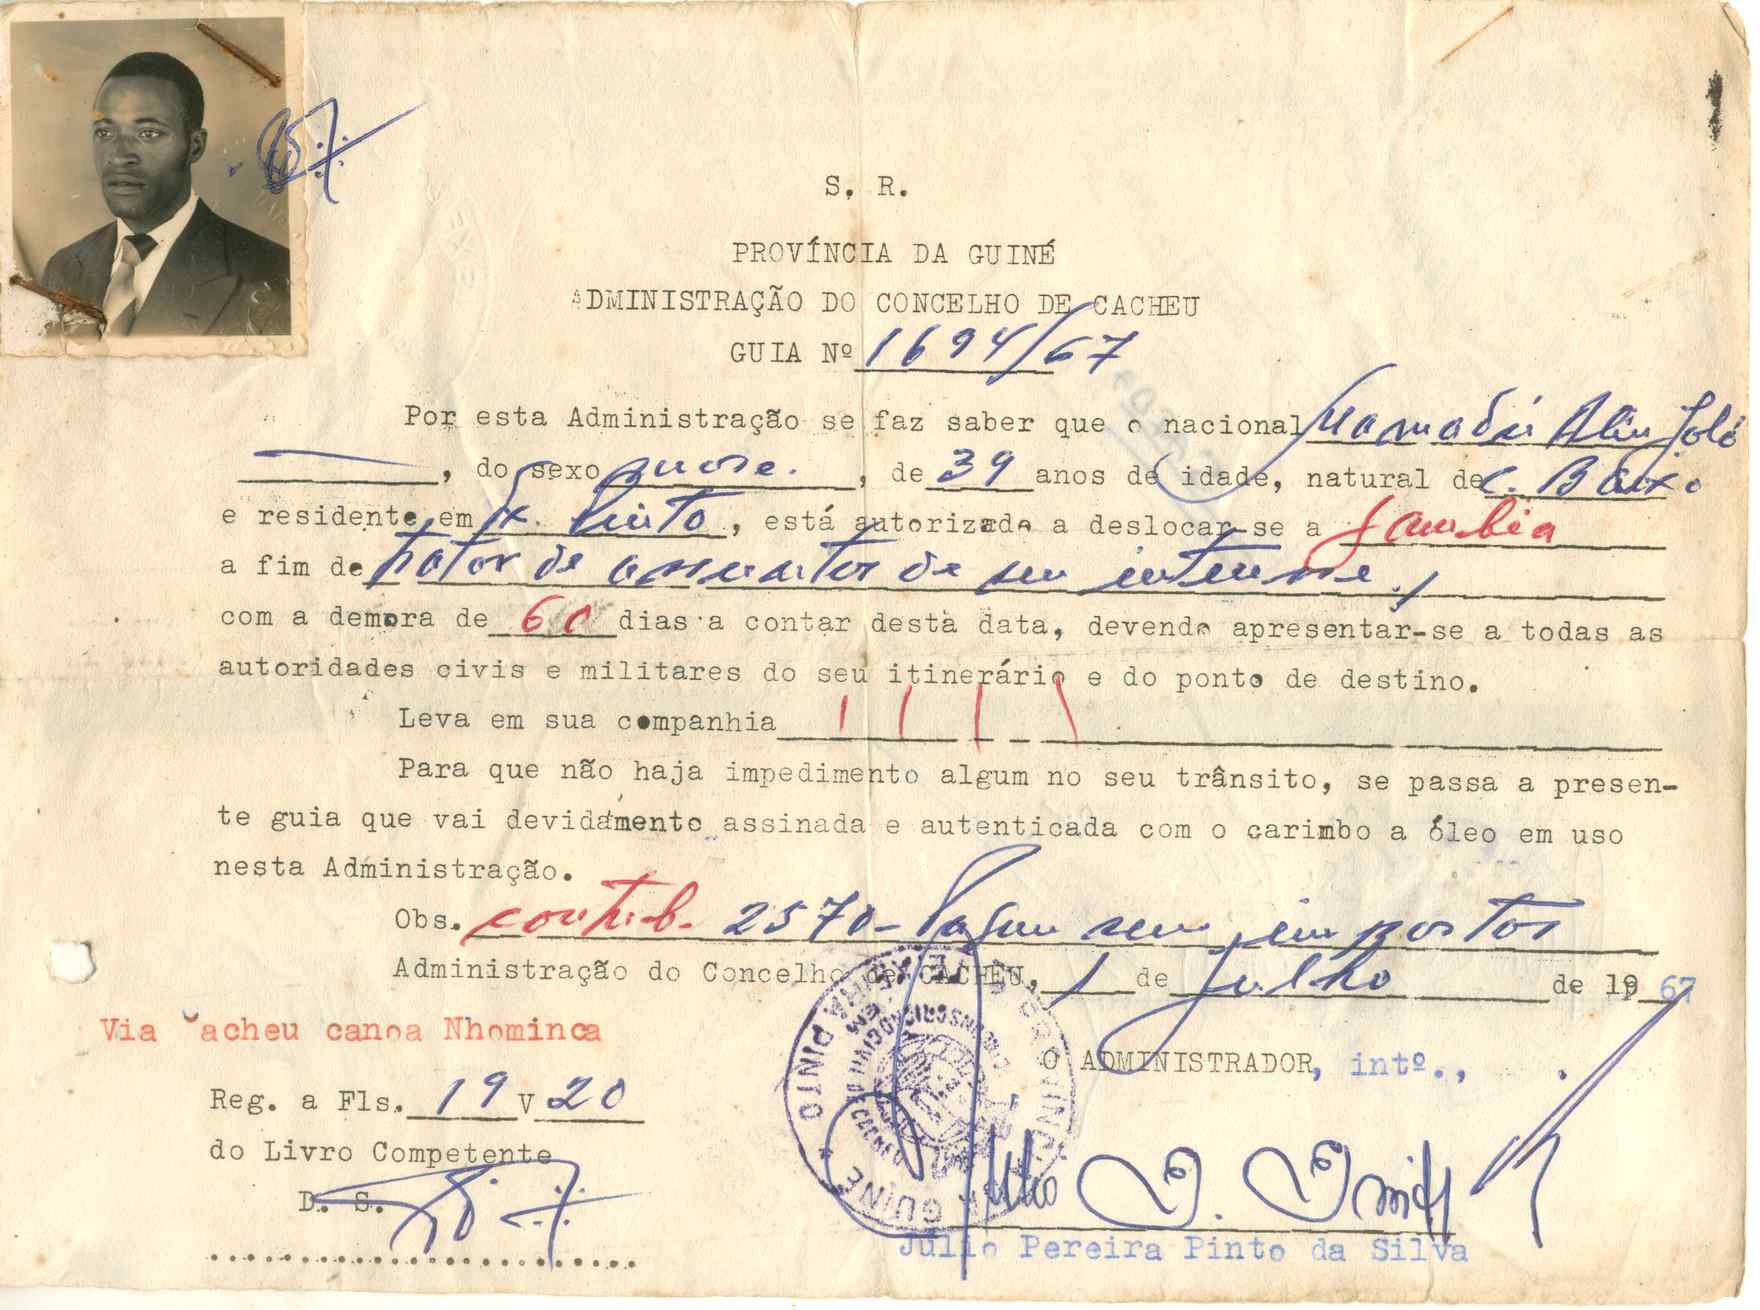 S. R.
PROVÍNCIA DA GUINÉ
ADMINISTRAÇÃO DO CONCELHO DE CACHEU
GUIA Nº 1694/67
Por esta Administração se faz saber que o nacional Mamadú Aliu Jaló
, do sexo masc. , de 39 anos de idade, natural de C. Baixo
e residente em Tx. Pinto, está autorizado a deslocar-se a Gambia
a fim de tratar de assuntos de seu interesse
com a demora de 60 dias a contar desta data, devendo apresentar-se a todas as
autoridades civis e militares do seu itinerário e do ponto de destino.
Leva em sua companhia
Para que não haja impedimento algum no seu trânsito, se passa a presen-
te guia que vai devidamente assinada e autenticada com o carimbo a óleo em uso
nesta Administração.
Obs. contrib. 2570- Pagou seus impostos
Administração do Concelho de CACHEU, 1 de Julho de 1967
Via Cacheu canoa Nhominca
O ADMINISTRADOR, intº.,
Reg. a Fls. 19 V 20
do Livro Competente
D. S.
GUINÉ
PINTO
Júlio Pereira Pinto da Silva